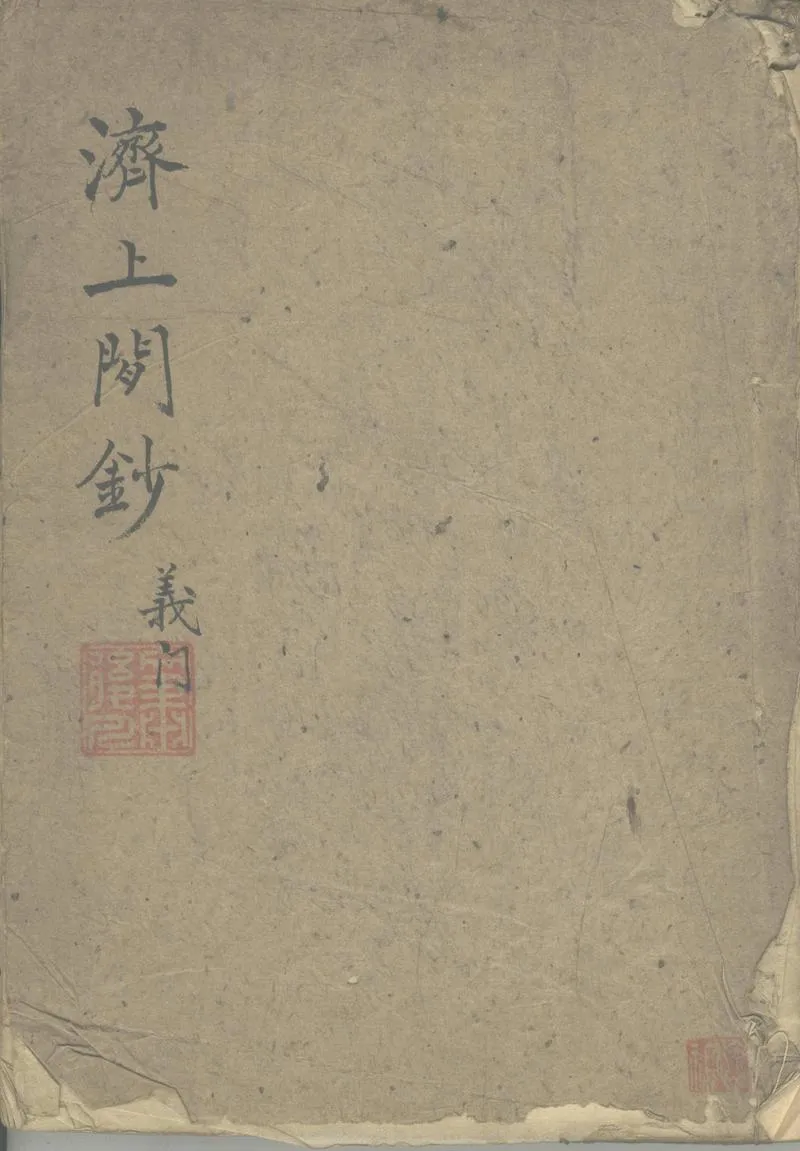 濟上閒鈔
義门